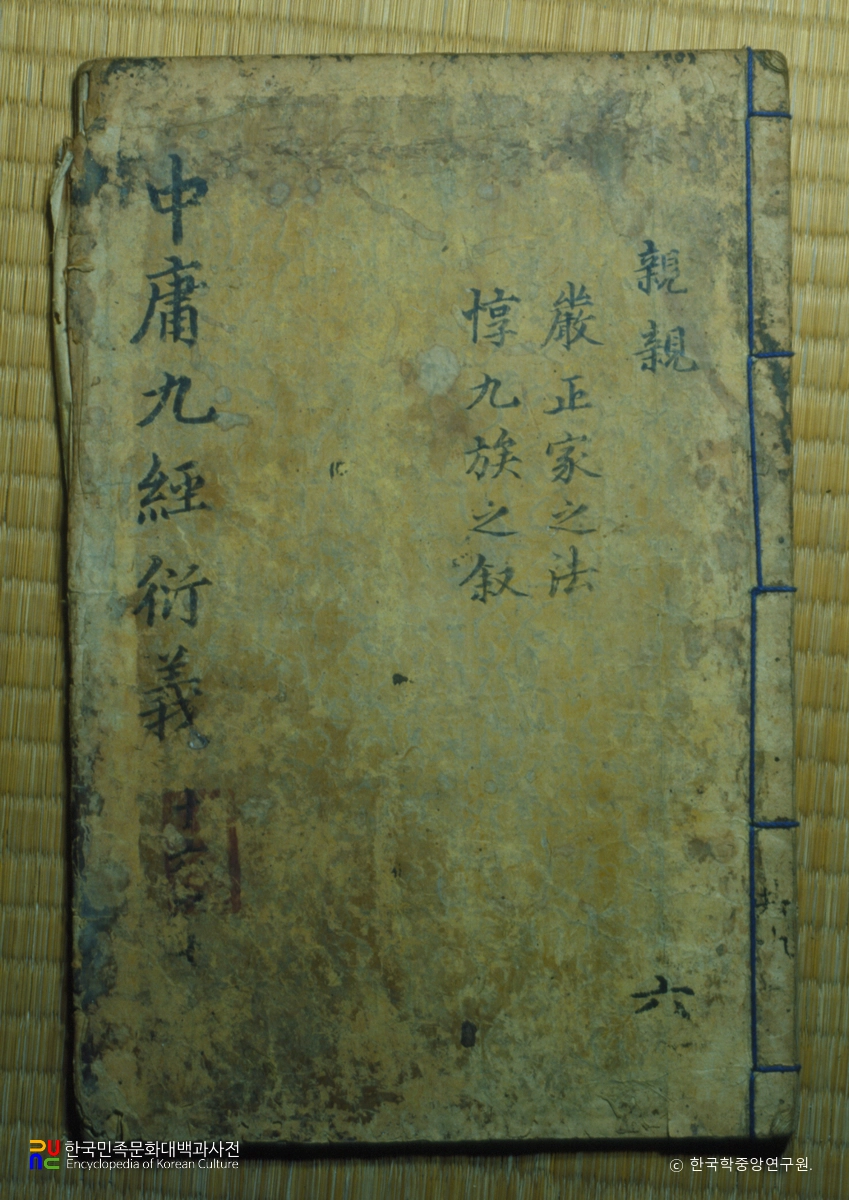 親親
嚴正家之法
惇九族之叙
六
中庸九經衍義
한국민족문화대백과사전
Encyclopedia of Korean Culture
© 한국학중앙연구원.